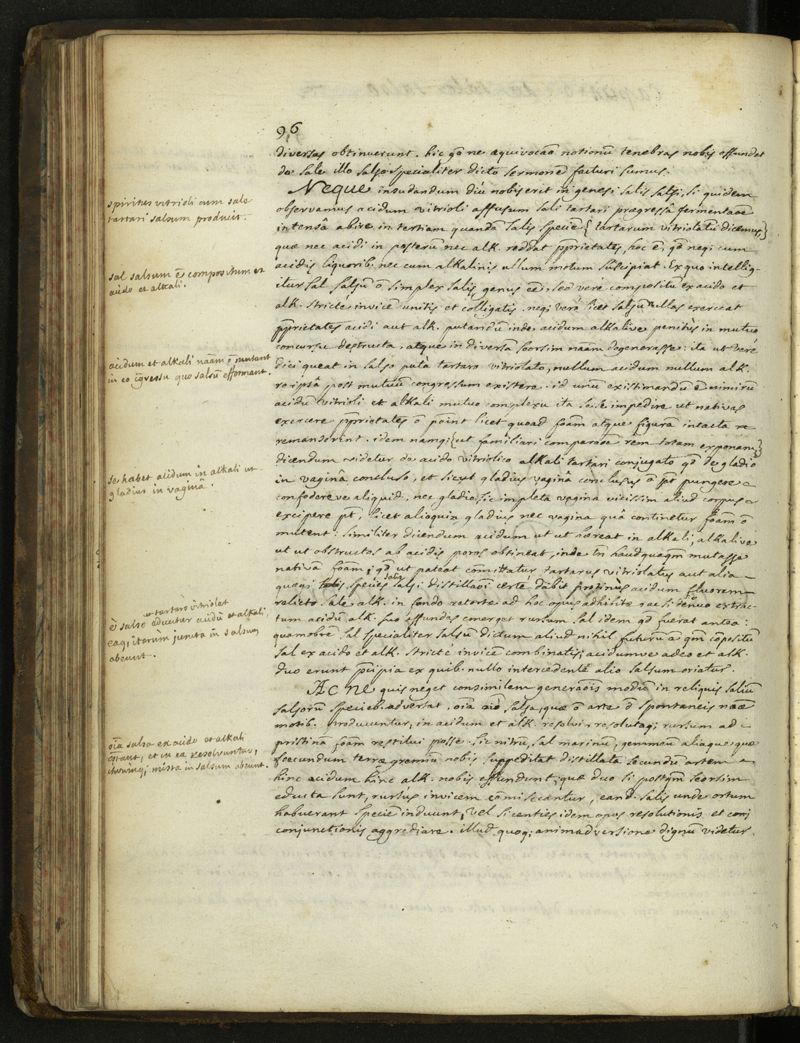 96
diversas obtinuerunt. hic qd ne aequivocaõ notionũ tenebras nobis offundat
de sale illo salso specialiter dicto sermonẽ facturi sumus.
Neque insudandum diu nobis erit in genesi salis salsi, si quidem
observamus acidum vitrioli affusum sali tartari praegressâ fermentaõe
intensâ abire in tertiam quandã salis speciẽ {tartarum vitriolatũ dicemus}
quae nec acidi in posterũ nec alk. reddat pprietates, hoc ẽ, qd neq; cum
acidis liquorib. nec cum alkalinis ullum motum suscipiat. Ex quo intellig-
itur sal salsũ õ simplex salis genus eẽ. sed vere compositũ ex acido et
alk. strictè invicẽ unitis et colligatis. neq; verò licet salsũ nullas exerceat
pprietates acidi aut alk. putandũ inde acidum alkalive penitùs in mutuo
concursu destructa, atque in diversã seorsim naãm degenerasse. ita ut verè
dici queat in salso putà tartaro vitriolato, nullum acidum nullum alk.
reipsâ post mutuũ congressum existere. id unũ existimandũ ẽ nimirũ
acidũ vitrioli et alkali mutuo complexu ita sese impedire ut nativas
exercere pprietates õ possint licet quoad foãm atque figurã intacta re
remanserint. idem namq; {ut familiari comparaõe rem totam exponam}
dicendum videtur de acido vitriolico alkali tartari conjugato qd de gladio
in vaginâ concluso, et sicut gladius vaginâ conclusus õ pt pungere
confodereve aliquid, nec gladio sic impleta vagina vicissim aliud corpus
excipere pt, licet alioquin gladius nec vagina quâ continetur foãm õ
mutent: similiter dicendum acidum ut ut haereat in alkali, alkalive
ut ut obstructos ab acidis poros obtineat, inde tn haudquaqm mutasse
nativã foãm; qd ut pateat comittatur tartarus vitriolatus aut alia
quaeq; species salis salsi distillaõni certè dabit protinus acidum fluorem
relicto sale alk. in fondo retortae ad hoc opus adhibitae
tum acidũ alk. suo affundas emerget rursum sal idem qd fuerat antea:
quamobrẽ sal specialiter salsũ dictum aliud nihil futurũ ã qm cõpositũ
sal ex acido et alk. strictè invicẽ combinatis; acidumve adeò et alk.
duo erunt pcipia ex quib. nullo intercedente alio salsum oriatur.
AC NE quis neget consimilem generaõis modũ in reliquis saliũ
salsorũ specieb. adversat. oĩa salsa, quae õ arte õ spontaneis naae
motib. producuntur, in acidum et alk. resolvi, resolutaq; rursum ad
pristinã foãm restitui posse. sic nitrũ, sal marinũ, gemmeũ aliaque quae
foecundum terrae gremiũ nobis suppeditat distillata secundũ artem
hinc acidum hinc alk. nobis effundunt, quae duo si postqm seorsim
educta sunt, rursus invicem cõmisceantur, eand. salis unde ortum
habuerant speciẽ induunt, vel si centies idem opus resolutionis et conj
conjunctionis aggrediare. illud quoq; animadversione dignũ videtur.
spiritus vitrioli cum sale
tartari salsum producit.
sal salsum ẽ compositum ex
acido et alkali.
acidum et alkali naãm õ mutant
in eo igressu quo salsũ efformant.
se habet acidum in alkali ut
gladius in vaginâ.
ut tartaro vitriolat
ẽ salso educitur acidũ et alkali,
eaq; iterùm juncta in salsum
abeunt.
oĩa salsa ex acido et alkali
cõstant, et in ea resolvuntur,
iterumq; mixta in salsum abeunt.